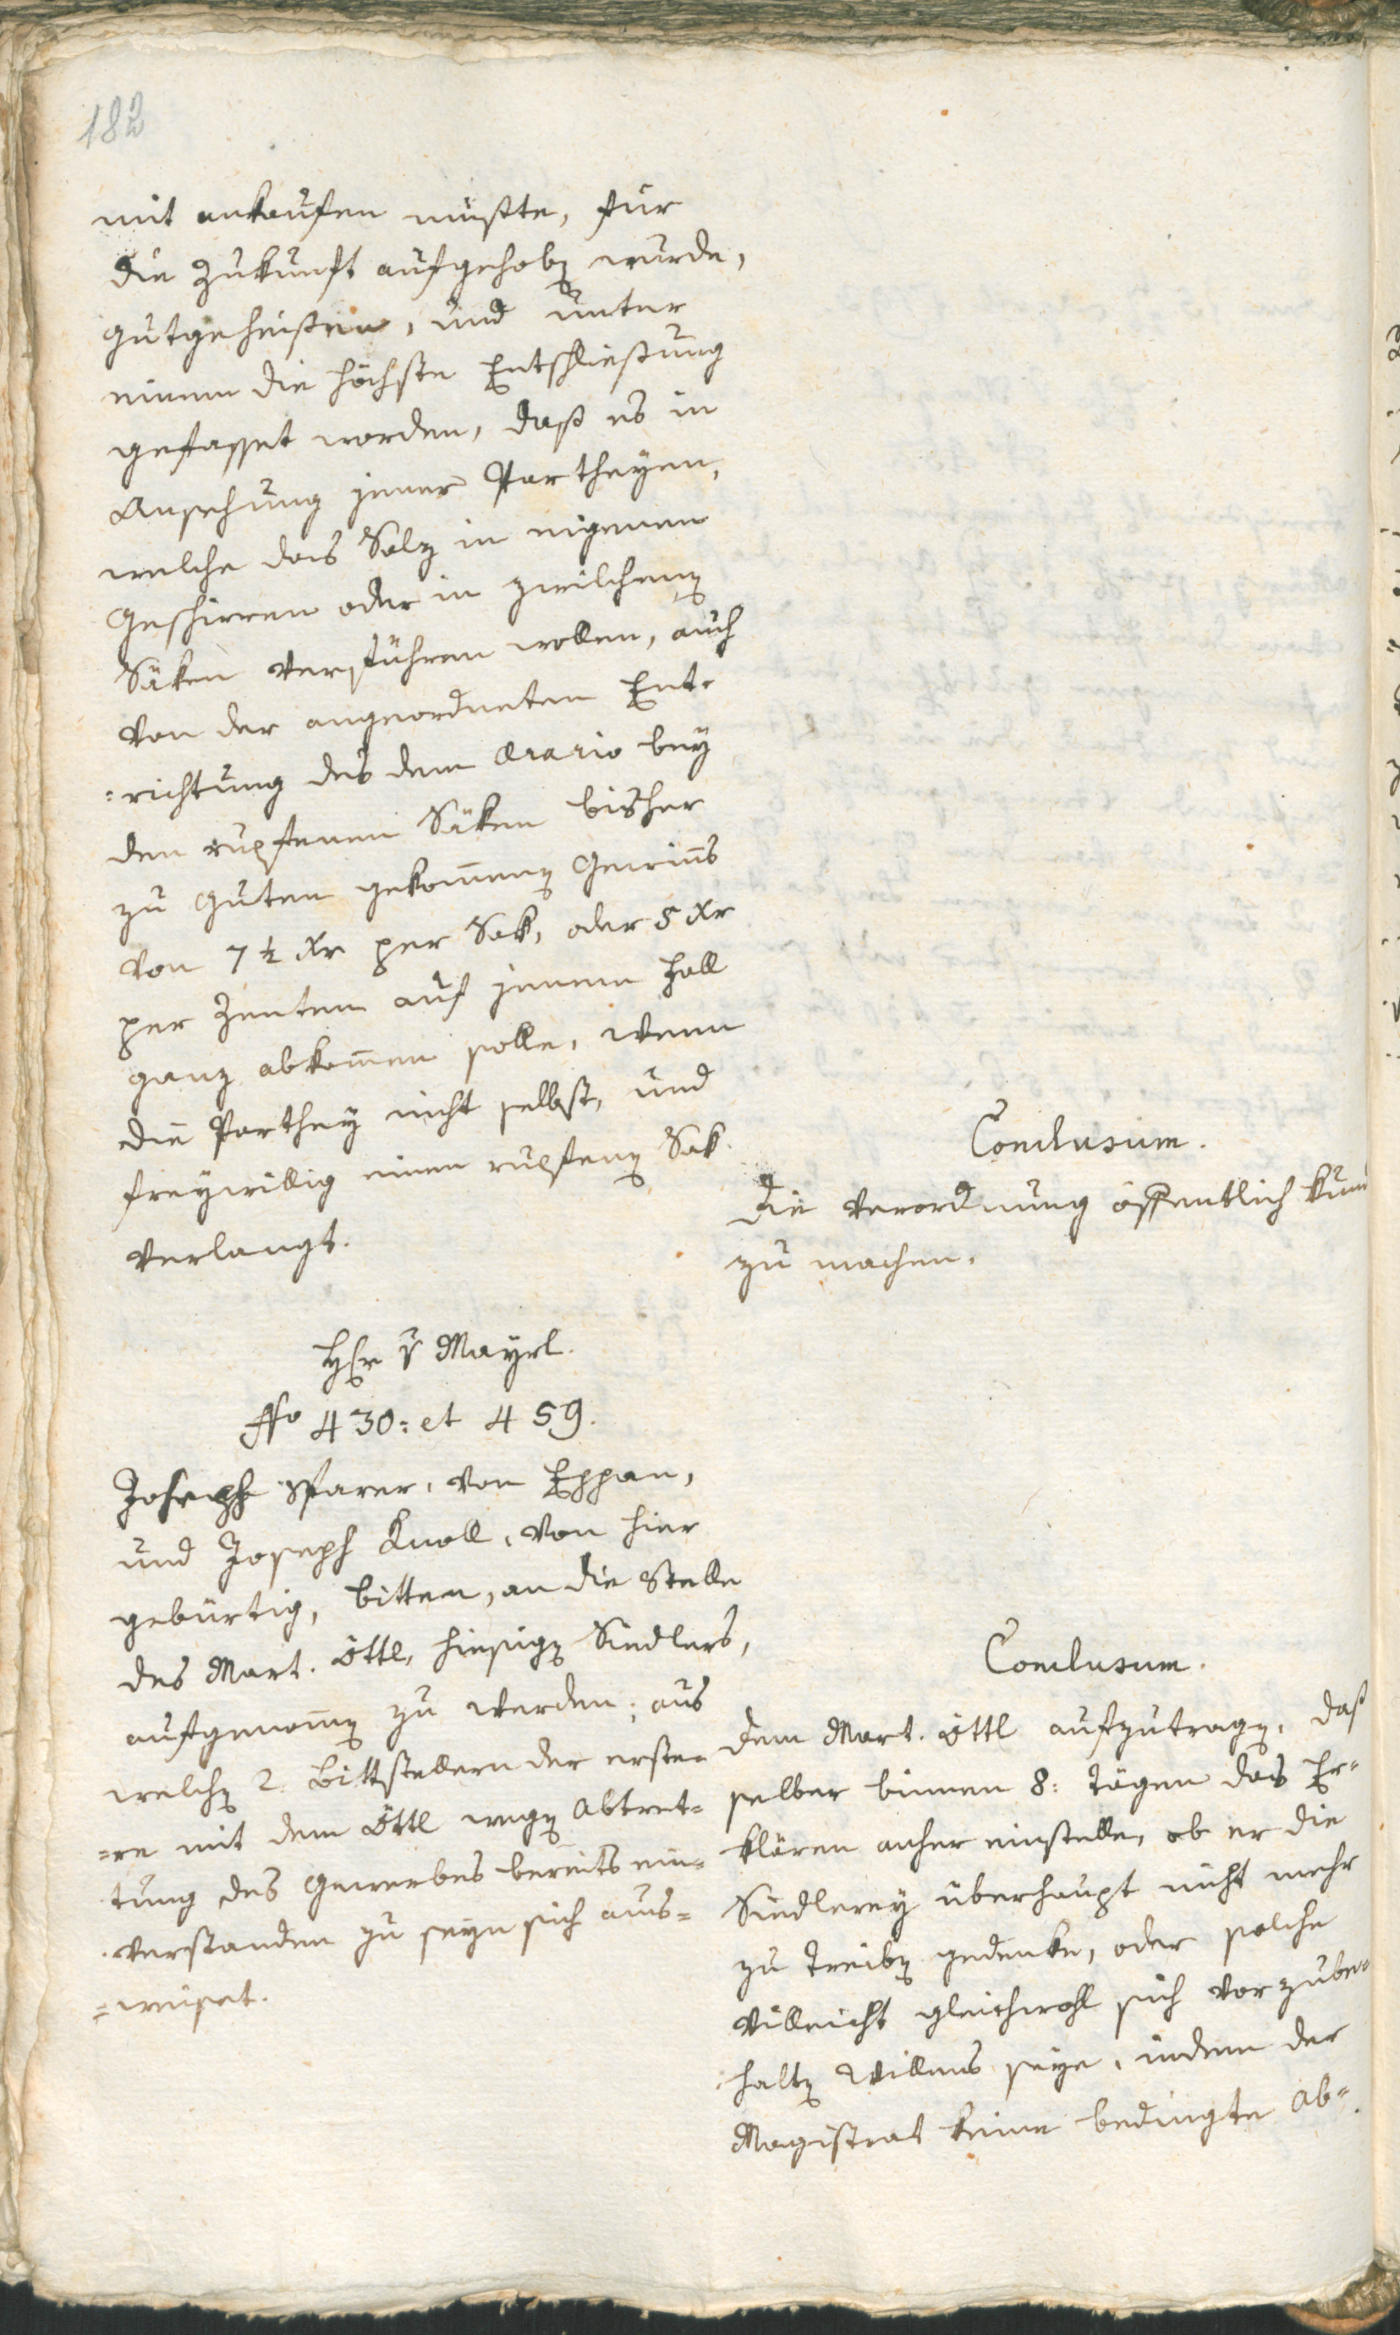 182
mit ankaufen müßte, für
die Zukunft aufgehoben wurde,
gutgeheißen, und unter
einem die höchste Entschließung
gefasset worden, daß es in
Ansehung jener Partheyen,
welche das Salz in eigenen
Geschirren oder in zwilchenen
Säken verführen wollen, auch
von der angeordneten Ent-
=richtung des dem Aerario bey
den rupfenen Säken bisher
zu Guten gekommenen Gewinns
von 7 ½ Xr per Sak, oder 5 Xr
per Zenten auf jenem Fall
ganz abkommen solle, wenn
die Parthey nicht selbst, und
freywillig einen rupfenen Sak
verlangt.
Conclusum.
Die Verordnung öffentlich kun
zu machen.
Hr v Mayrl.
No 430: et 459.
Joseph Sparer, von Eppan,
und Joseph Knoll, von hier
gebürtig, bitten, an die Stelle
des Mart. Öttl, hiesigen Siedlers,
aufgenommen zu werden; aus
welchen 2. Bittstellern der erste-
=re mit dem Öttl wegen Abtret=
tung des Gewerbes bereits ein=
verstanden zu seyn sich aus=
=weiset.
Conclusum.
Dem Mart. Öttl aufzutragen, daß
selber binnen 8: Tägen das Er=
klären anher einstelle, ob er die
Siedlerey überhaupt nicht mehr
zu treiben gedenke, oder solche
villeicht gleichwohl sich vorzube=
halten Willens seye, indem der
Magistrat keine bedingte Ab=